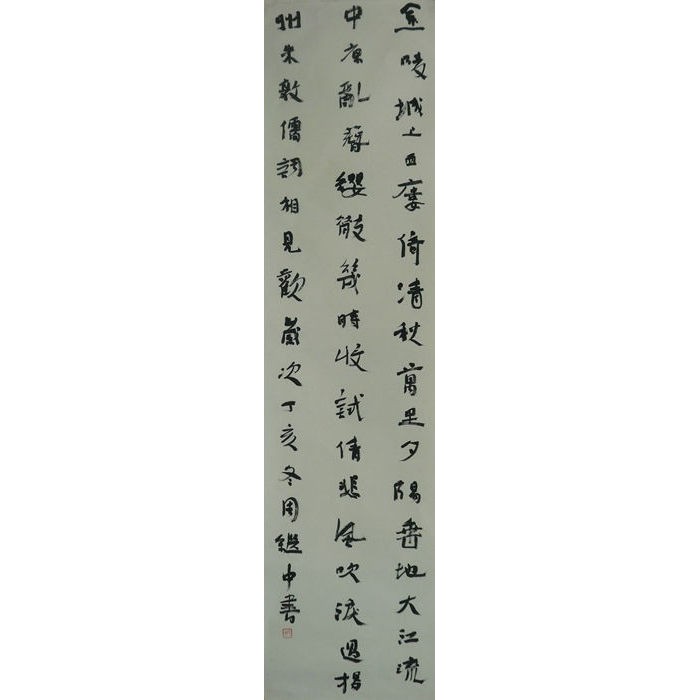 金陵城上西樓倚清秋萬里夕陽垂地大江流
中原亂簪纓散幾時收試倩悲風吹淚過揚
州朱敦儒詞相見歡歲次丁亥冬周繼中書